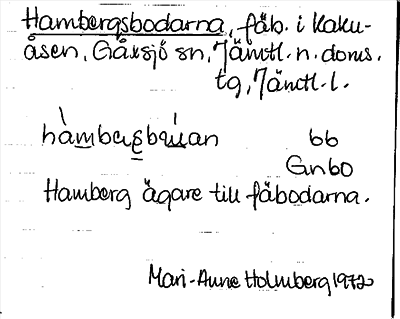 Hambergsbodarna, fäb. i Kaku-
åsen, Gåxsjö sn, Jämtl. n. doms.
tg, Jämtl. l.
bb
Gnbo
Hamberg ägare till fäbodarna.
Mari-Anne Holmberg 1972